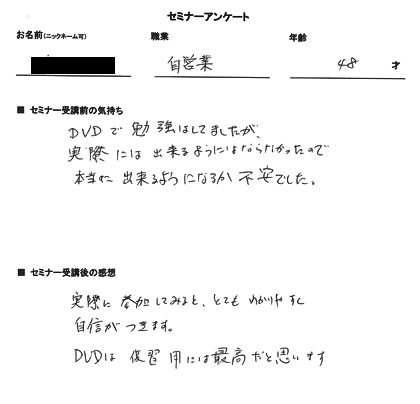 セミナーアンケート
お名前(ニックネーム可) 職業 年齢
自営業 48 才
■ セミナー受講前の気持ち
DVDで勉強はしてましたが、
実際には出来るようにはならなかったので
本当に出来るようになるか不安でした。
■ セミナー受講後の感想
実際に参加してみると、とてもわかりやすく
自信がつきます。
DVDは復習用には最高だと思います